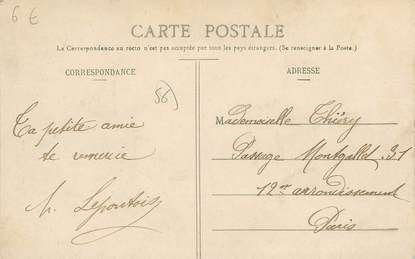 6 €
CARTE POSTALE
La Correspondance au recto n'est pas acceptée par tous les pays étrangers. (Se renseigner à la Poste.)
CORRESPONDANCE
ADRESSE
56
Ta petite amie
te remercie
Mademoiselle Thiéry
Passage Montgallet 31
12er arrondissement
Paris